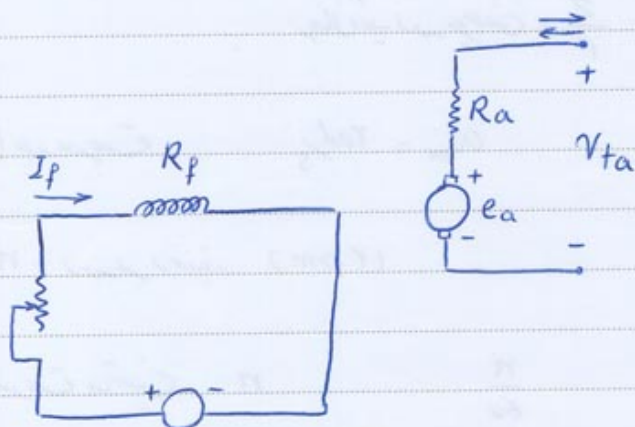 I_f
R_f
+ -
R_a
+
e_a
-
+
V_ta
-